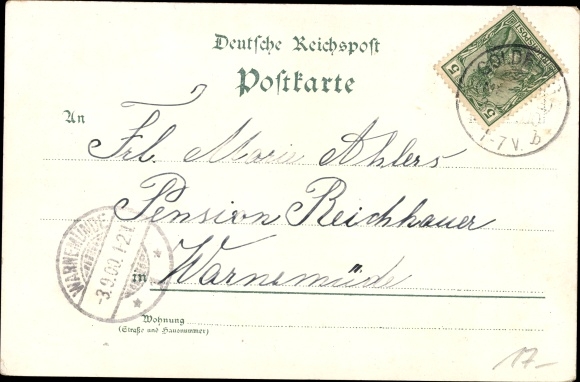 Deutsche Reichspost
Postkarte
An
Frl. Marie Ahlers
Pension Reichhauer
in Warnemünde
Wohnung
(Straße und Hausnummer)
WARNEMÜNDE
-3.9.00.1-2
5
5
GOLDBE
-7 V. b
17-